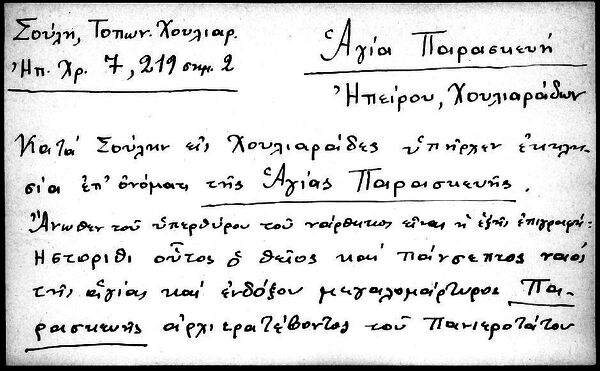 Σούλη, Τοπων. Χουλιαρ.
Ἠπ. Χρ. 7, 219 σημ. 2
Ἁγία Παρασκευή
Ἠπείρου, Χουλιαράδων
Κατά Σούλην εἰς Χουλιαράδες ὑπῆρχεν ἐκκλη-
σία ἐπ' ὀνόματι τῆς Ἁγίας Παρασκευῆς.
Ἄνωθεν τοῦ ὑπερθύρου τοῦ νάρθηκος εἶναι ἡ ἑξῆς ἐπιγραφή:
Ηστορίθι οὗτος ὁ θεῖος καί πάνσεπτος ναός
τῆς ἁγίας καί ἐνδόξου μεγαλομάρτυρος Πα-
ρασκευῆς ἀρχιερατέβοντος τοῦ Πανιεροτάτου